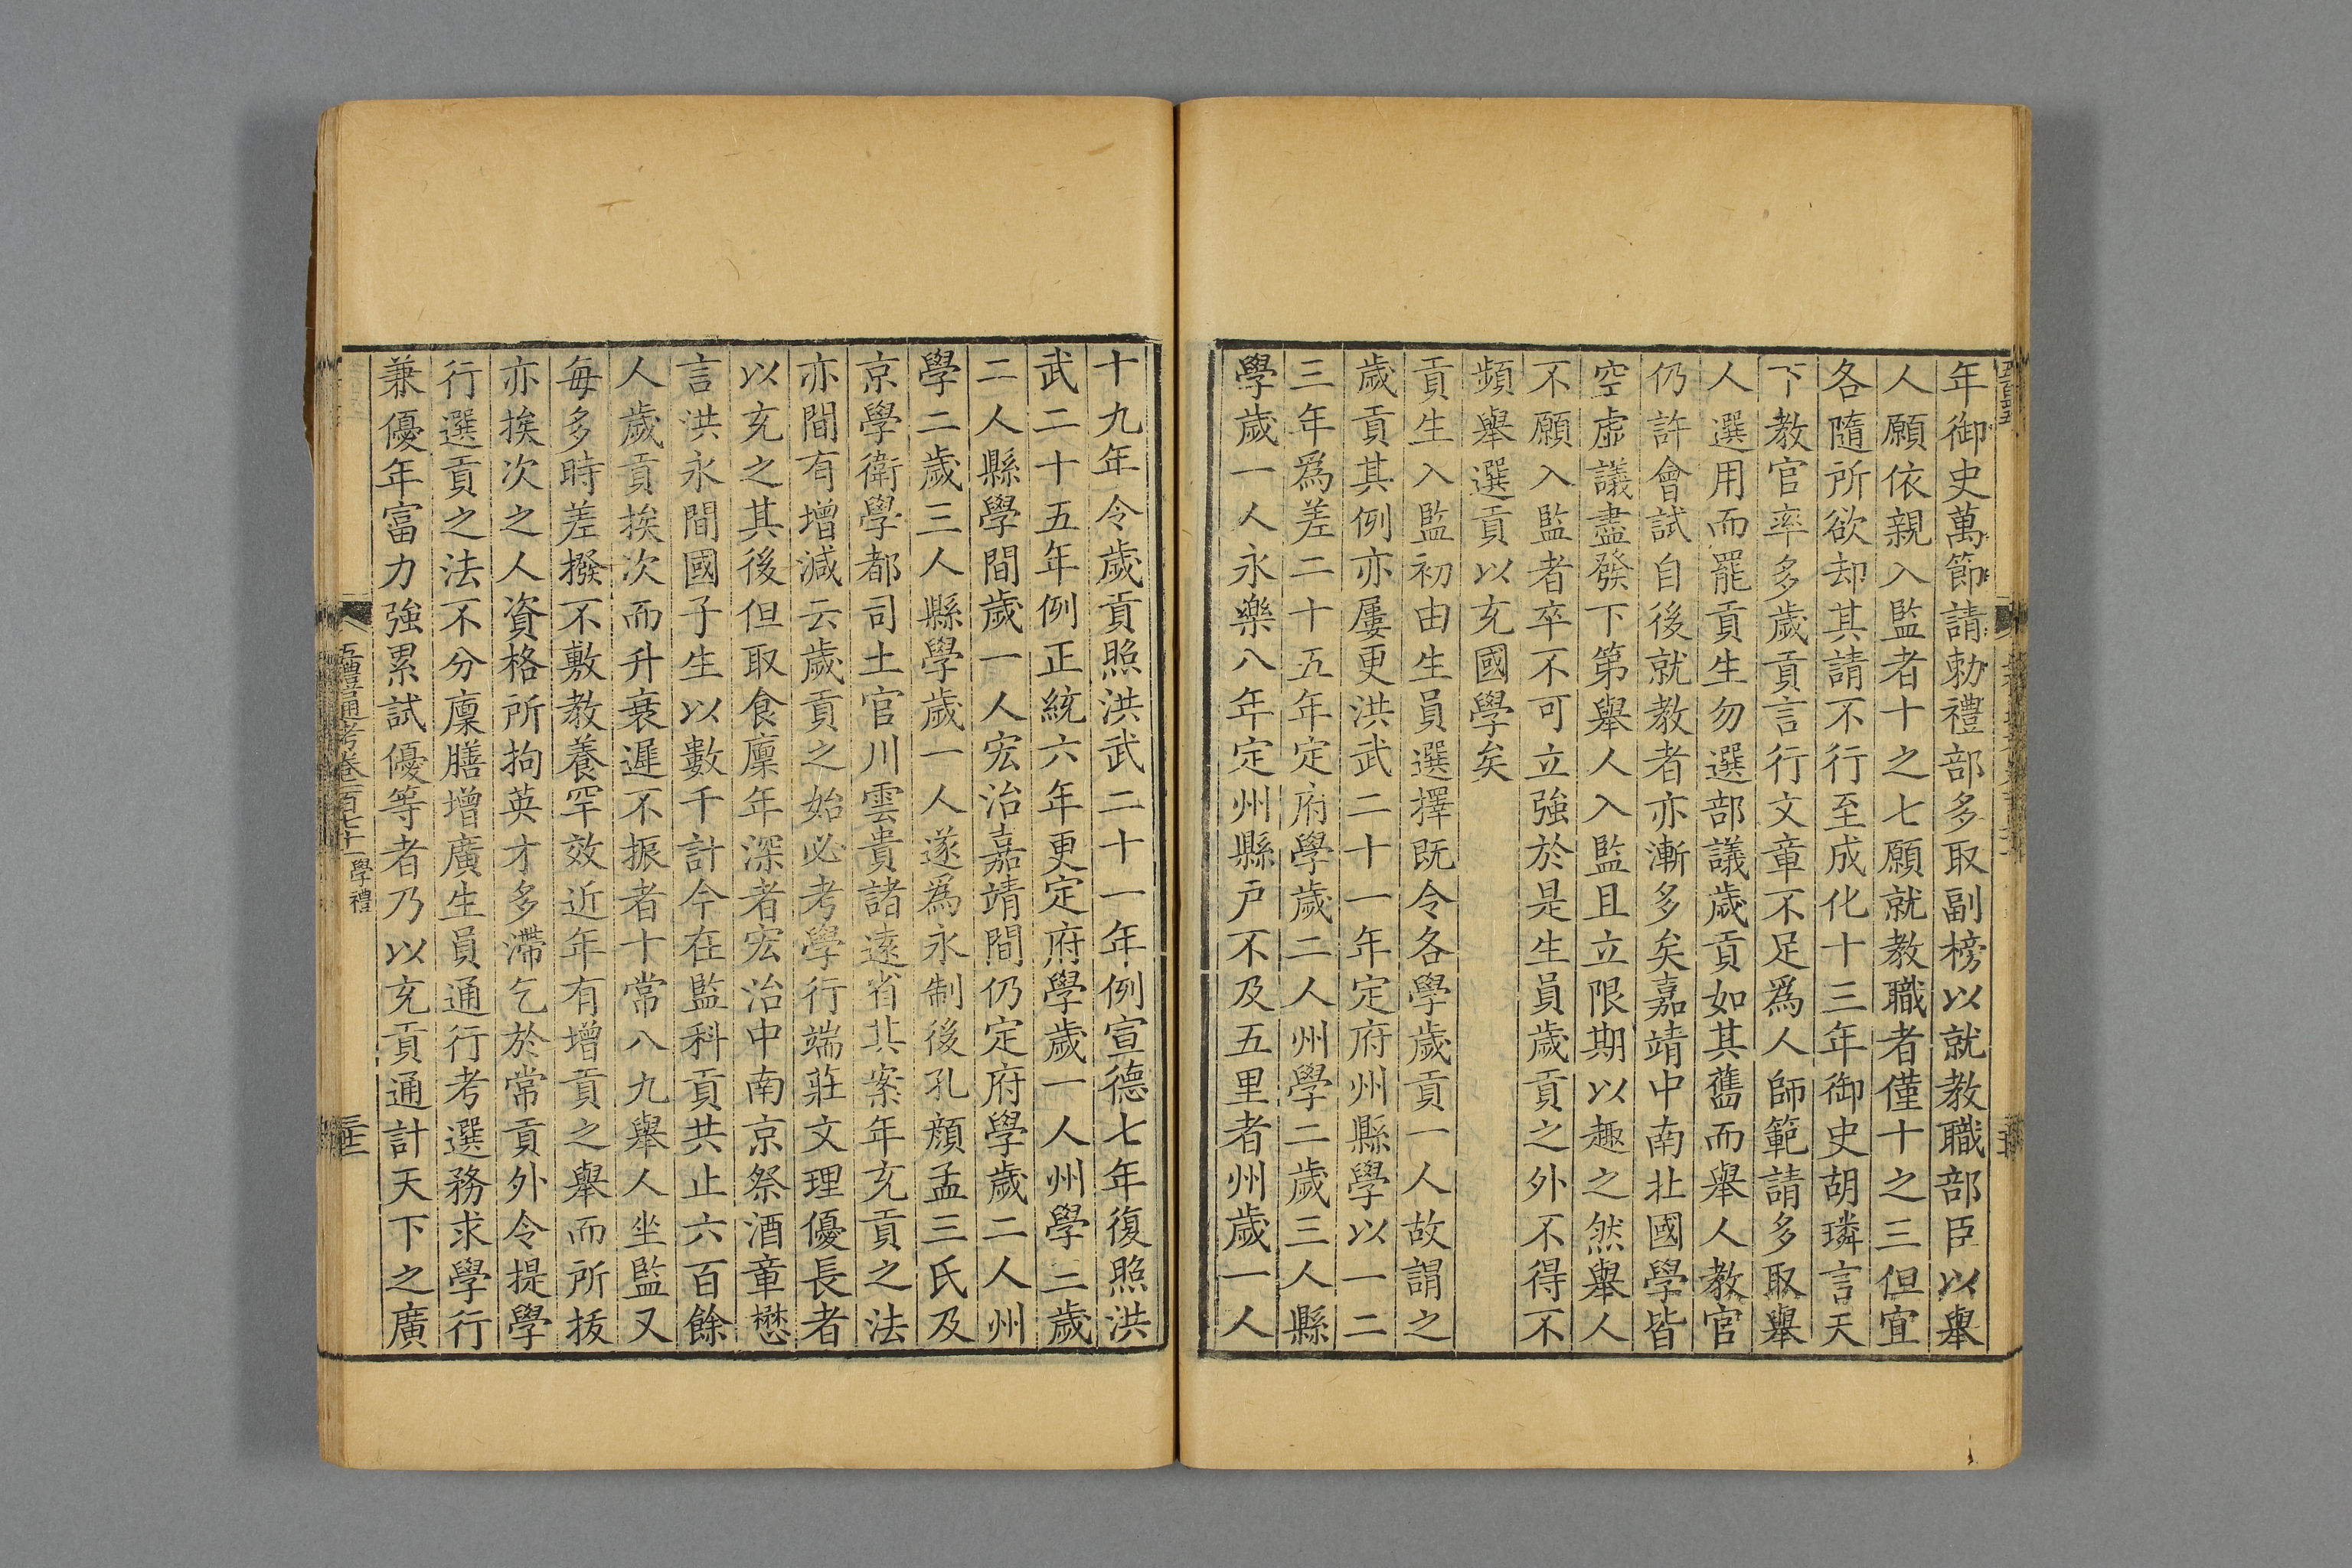 年御史萬節請勅禮部多取副榜以就教職部臣以舉
人願依親入監者十之七願就教職者僅十之三但宜
各隨所欲却其請不行至成化十三年御史胡璘言天
下教官率多歲貢言行文章不足爲人師範請多取舉
人選用而罷貢生勿選部議歲貢如其舊而舉人教官
仍許會試自後就教者亦漸多矣嘉靖中南北國學皆
空虛議盡發下第舉人入監且立限期以趣之然舉人
不願入監者卒不可立強於是生員歲貢之外不得不
頻舉選貢以充國學矣
貢生入監初由生員選擇既令各學歲貢一人故謂之
歲貢其例亦屢更洪武二十一年定府州縣學以一二
三年爲差二十五年定府學歲二人州學二歲三人縣
學歲一人永樂八年定州縣戶不及五里者州歲一人
十九年令歲貢照洪武二十一年例宣德七年復照洪
武二十五年例正統六年更定府學歲一人州學二歲
二人縣學間歲一人宏治嘉靖間仍定府學歲二人州
學二歲三人縣學歲一人遂爲永制後孔顏孟三氏及
京學衛學都司土官川雲貴諸遠省其案年充貢之法
亦間有增減云歲貢之始必考學行端莊文理優長者
以充之其後但取食廩年深者宏治中南京祭酒章懋
言洪永間國子生以數千計今在監科貢共止六百餘
人歲貢挨次而升衰遲不振者十常八九舉人坐監又
每多時差撥不敷教養罕效近年有增貢之舉而所拔
亦挨次之人資格所拘英才多滯乞於常貢外令提學
行選貢之法不分廩膳增廣生員通行考選務求學行
兼優年富力強累試優等者乃以充貢通計天下之廣
五禮通考卷一百七十一 學禮